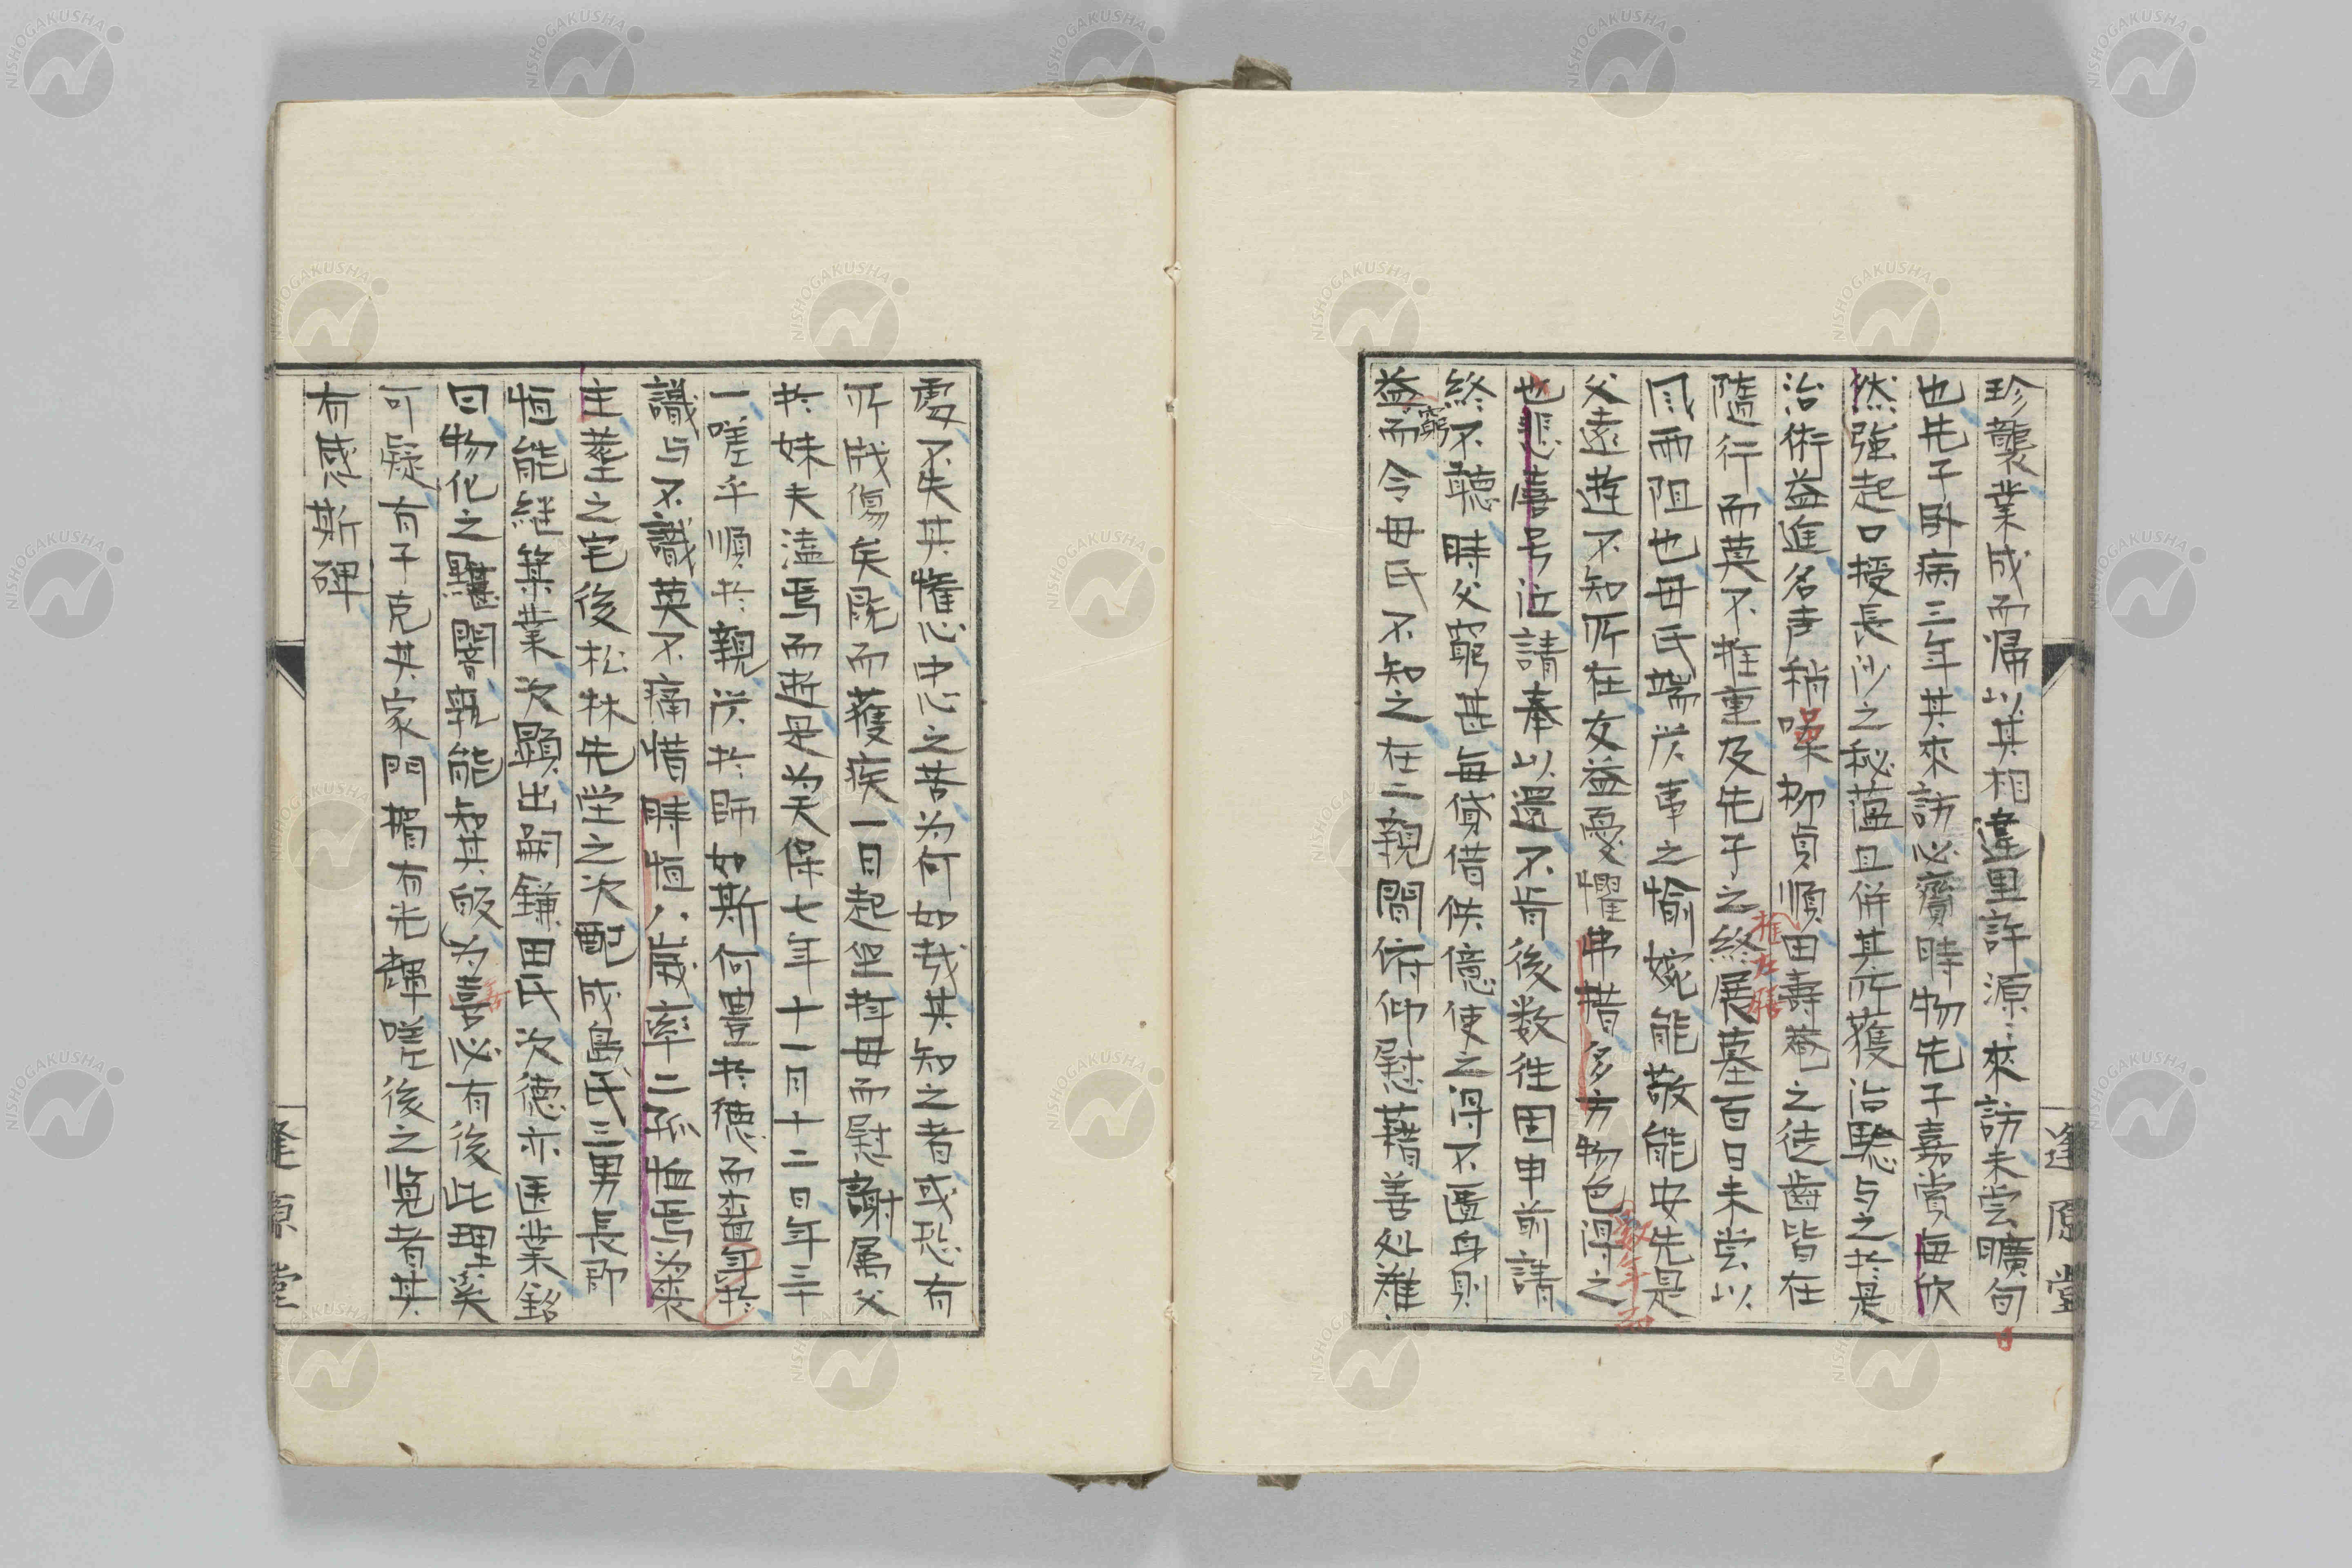 珍襲業成而帰以其相違里許源〻來訪未尝曠旬
也先子卧病三年其來訪必齎時物先子嘉賞每欣
然強起口授長沙之秘蘊且併其所獲治驗与之於是
治術益進名声稍噪初貞順田壽菴之徒齒皆在
随行而莫不推重及先子之終展墓百日未尝以
風雨阻也母氏端 事之愉婉能敬能安先是
父遠遊不知所在友益憂懼弗措多方物色得之
也悲喜号泣請奉以還不肯後数往固申前請
終不聽時父窮甚每貸借供億使之得不匱身則
益窮而令母氏不知之在二親間俯仰慰藉善処難〻
處不失其懽心中心之苦为何如哉其知之者或恐有
所戕傷矣既而獲疾一日起坐揖母而慰謝属父
於妹夫 焉而逝是为天保七年十一月十二日年三十
一嗟乎順於親 於師如斯何豊於德而嗇年於
識与不識莫不痛惜時恒八歲率二孤恤焉为喪
主葬之宅後松林先塋之次配成島氏三男長即
恒能継箕業次顕出嗣鎌田氏次徳亦医業銘
曰物化之 闇孰能知其 为喜必有後此理奚
可疑有子克其家門楣有光輝嗟後之覧者其
有感斯碑
逢原堂
逢原堂
推在勝
数年而
NISHOGAKUSHA